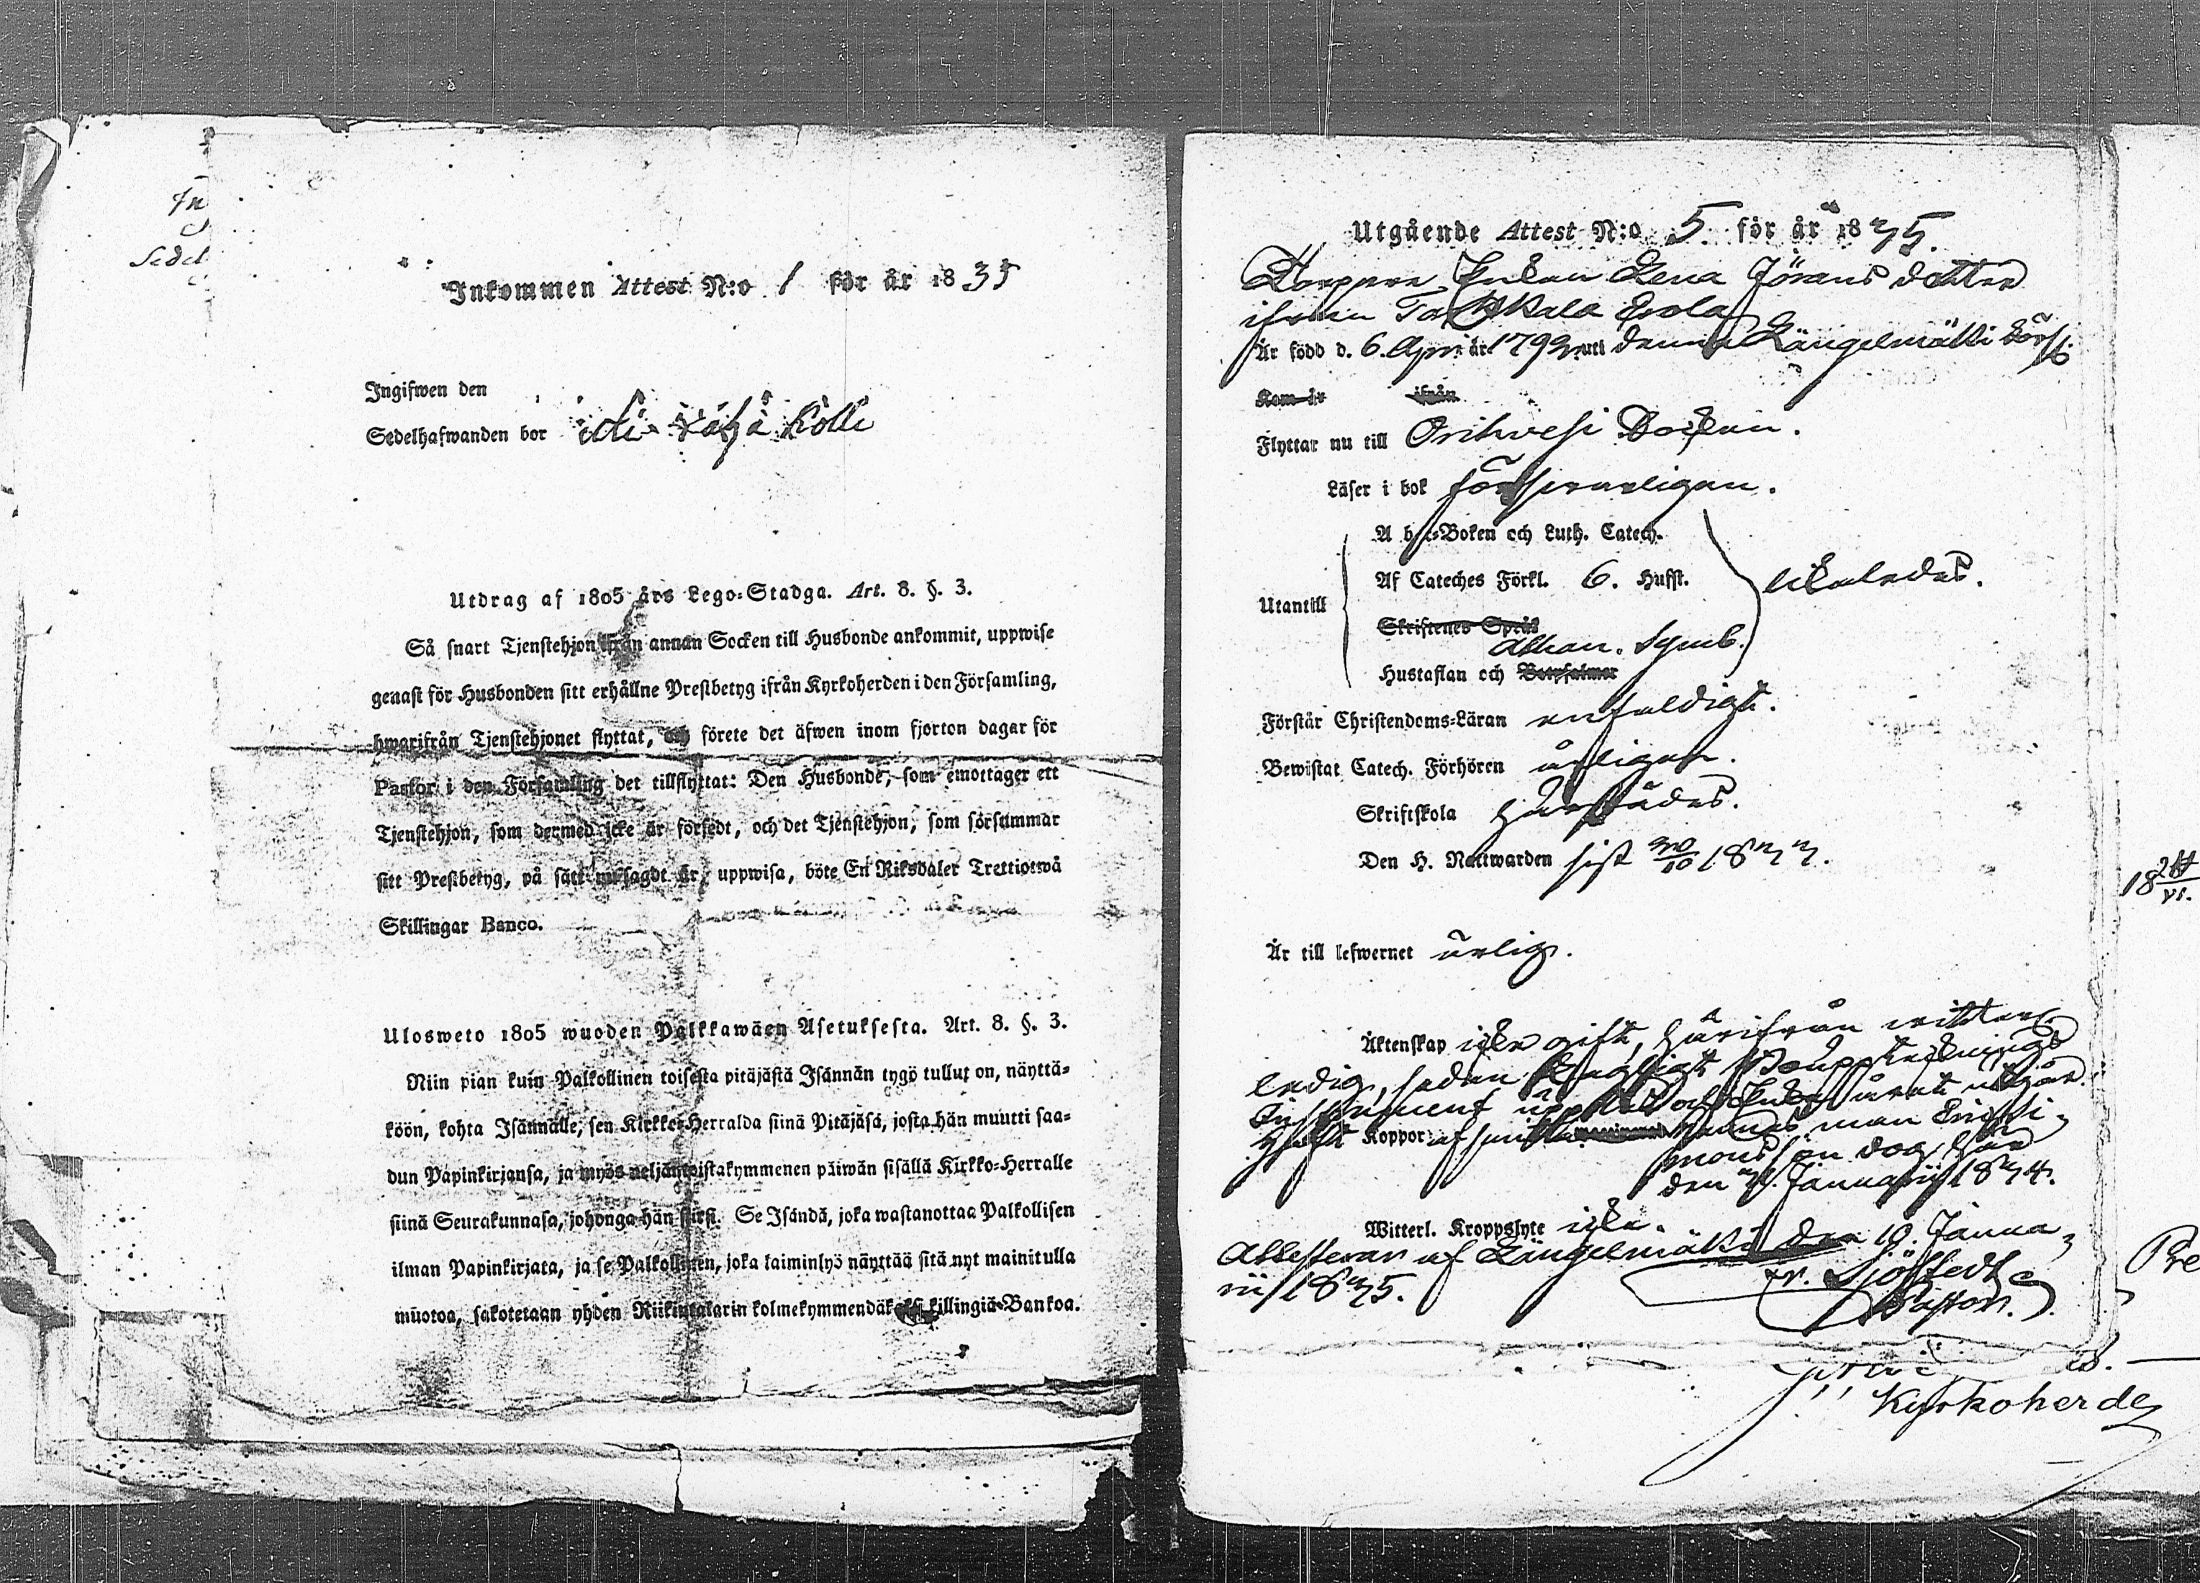 In
Sedel
Inkommen Attest N:o 1 för år 1835
Ingifwen den
Sedelhafwanden bor
Utdrag af 1805 års Lego-Stadga. Art. 8. §. 3.
Så snart Tjenstehjon ifrån annan Socken till Husbonde ankommit, uppwise
genast för Husbonden sitt erhållne Prestbetyg ifrån Kyrkoherden i den Församling,
hwarifrån Tjenstehjonet flyttat, och förete det äfwen inom fjorton dagar för
Pastor i den Församling det tillflyttat: Den Husbonde, som emottager ett
Tjenstehjon, som dermed icke är försedt, och det Tjenstehjon, som försummar
sitt Prestbetyg, på sätt nu sagdt är, uppwisa, böte En Riksdaler Trettiotwå
Skillingar Banco.
Ulosweto 1805 wuoden Palkkawäen Asetuksesta. Art. 8. §. 3.
Niin pian kuin Palkollinen toisesta pitäjästä Isännän tygö tullut on, näyttä-
köön, kohta Isännälle, sen Kirkko-Herralda siinä Pitäjäsä, josta hän muutti saa-
dun Papinkirjansa, ja myös neljäntoistakymmenen päiwän sisällä Kirkko-Herralle
siinä Seurakunnasa, johonga hän siirsi. Se Isändä, joka wastanottaa Palkollisen
ilman Papinkirjata, ja se Palkollinen, joka laiminlyö näyttää sitä nyt mainitulla
muotoa, sakotetaan yhden Riikintalarin kolmekymmendäkaksi killingiä Bankoa.
Utgående Attest N:o 5. för år 1875.
Torpare Enkan Lena Jörans dotter
ifrån Erola
Är född d. 6. April år 1792 uti denna Längelmäki förs.
Kom år ifrån
Flyttar nu till Orihvesi Socken.
Läser i bok försvarligen.
A b c-Boken och Luth. Catech.
Af Cateches Förkl. 6. Hufst. likaledes.
Utantill
Skriftenes Språk
Athan. Symb.
Hustaflan och Botpsalmer
Förstår Christendoms-Läran enfaldigt.
Bewistat Catech. Förhören årligen.
Skriftskola härstädes.
Den H. Nattwarden sist 20/10 1877.
Är till lefwernet ärlig.
Äktenskap icke gift, härifrån witterl.
ledig, sedan Boupptecknings
Instrument
Koppor hennes man Eric Si-
monsson dog här
den 21. Januarii 1874.
Witterl. Kroppslyte icke.
Attesterar af Längelmäki den 19. Janua-
rii 1875. Fr. Sjöstedt
Pastor.
Kyrkoherde
18 24/
Pre